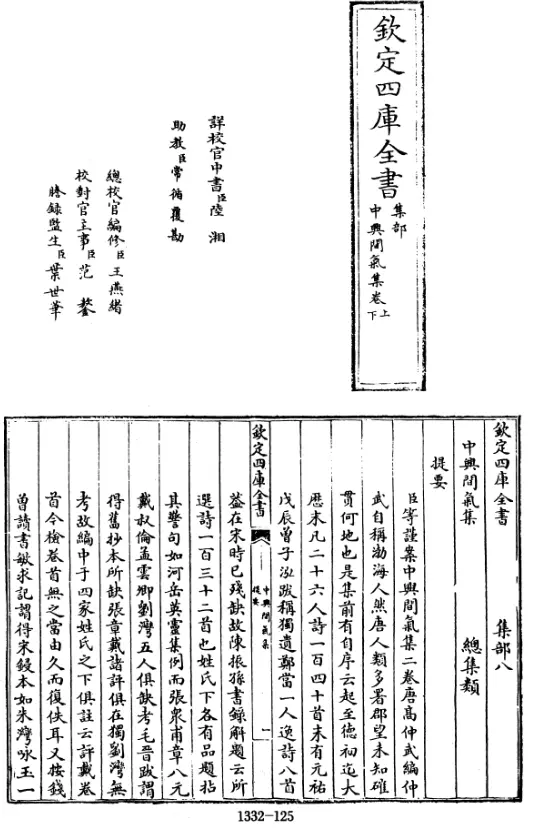 欽定四庫全書
集部
中興間氣集卷上下
詳校官中書臣陸湘
助教臣常循覆勘
總校官編修臣王燕緒
校對官主事臣范鏊
謄錄監生臣葉世華
欽定四庫全書 集部八
中興間氣集 總集類
提要
臣等謹案中興間氣集二卷唐高仲武編仲
武自稱渤海人然唐人類多署郡望未知確
貫何地也是集前有自序云起至德初迄大
歷末凡二十六人詩一百四十首末有元祐
戊辰曾子泓跋稱獨遺鄭當一人逸詩八首
欽定四庫全書
中興間氣集
提要
一
葢在宋時已殘缺故陳振孫書錄解題云所
選詩一百三十二首也姓氏下各有品題拈
其警句如河岳英靈集例而張衆甫章八元
戴叔倫孟雲卿劉灣五人俱缺考毛晉跋謂
得舊抄本所缺張章戴諸評俱在獨劉灣無
考故編中于四家姓氏之下俱註云評載卷
首今檢卷首無之當由久而復佚耳又按錢
曾讀書敏求記謂得宋鋟本如朱灣咏玉一
1332-125